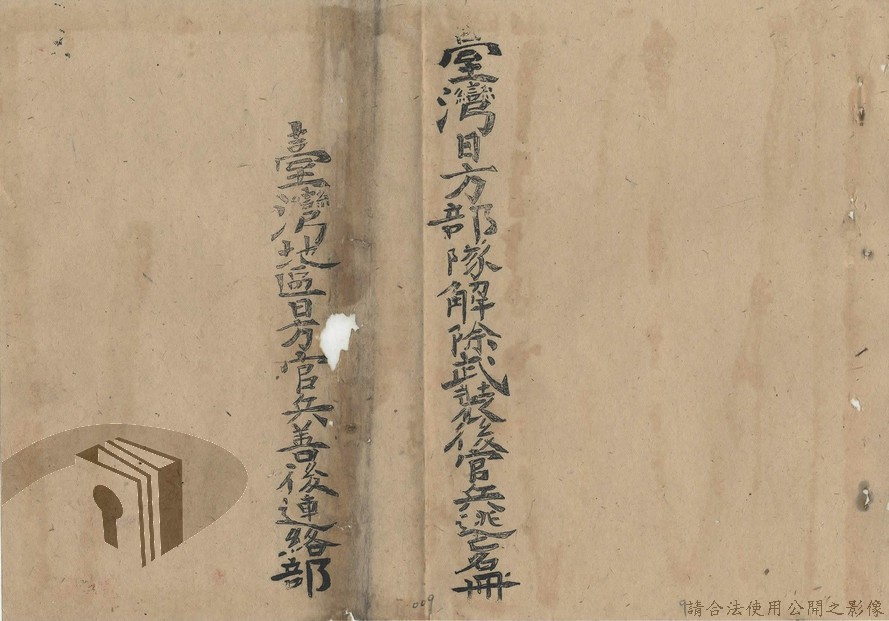 臺灣日方部隊解除武裝後官兵逃亡名冊
臺灣地區日方官兵善後連絡部
009
請合法使用公開之影像